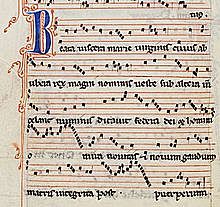 Beata viscera marie virginis cuius ad
ubera rex magni nominis veste sub altera vim
celans numinis dictavit federa dei & homini
mira novitas & novum gaudium
matris integrita post puerperium